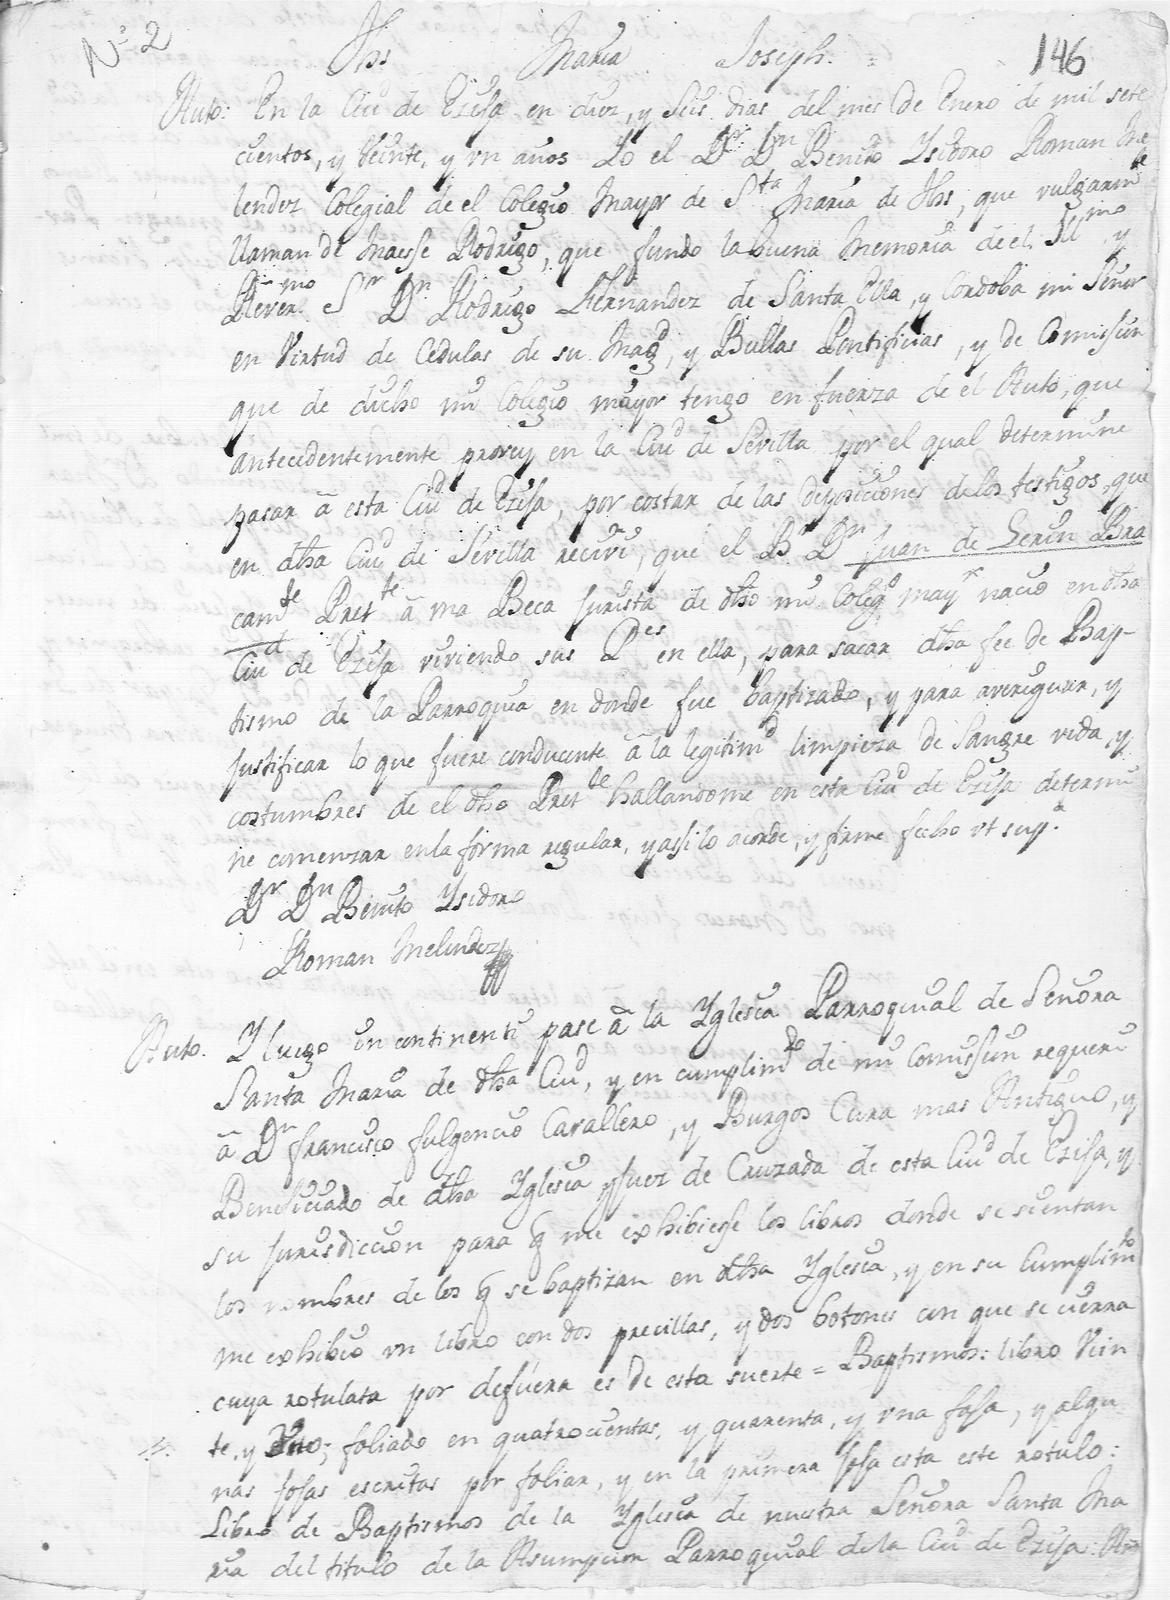 Nº 2 Jhs Maria Joseph. 146
Auto: En la Ciud de Ezija en diez, y seis dias del mes de Enero de mil sete
cientos, y Veinte, y vn años Yo el Dr Dn Benito Ysidoro Roman Me
lendez Colegial de el Colegio Mayor de Sta Maria de Jhs, que vulgarmte
llaman de Maese Rodrigo, que fundo la buena Memoria de el Illmo y
Revermo Sr Dn Rodrigo Fernandez de Santa Ella, y Cordoba mi Señor
en Virtud de Cedulas de su Magd, y Bullas Pontificias, y de Comission
que de dicho mi Colegio mayor tengo en fuerza de el Auto, que
antecedentemente provey en la Ciud de Sevilla por el qual determine
pasar â esta Ciud de Ezija, por costar de las deposiciones de los testigos, que
en dha Ciud de Sevilla recivi, que el Br Dn Juan de Serin Bra
camte Prette â vna Beca Jurista de dho mi Colego mayr nacio en dha
Ciud de Ezija viviendo sus Pes en ella, para sacar dha fee de Bap-
tismo de la Parroquia en donde fue baptizado, y para averiguar, y
justificar lo que fuere conducente â la legitimd limpieza de Sangre vida, y
costumbres de el dho Prette hallandome en esta Ciud de Ezija determi
ne comenzar en la forma regular, y assi lo acorde, y firme fecho vt supa.
Dr Dn Benito Ysidoro
Roman Melendez
Auto. Y luego in continenti pase â la Yglesia Parroquial de Señora
Santa Maria de dha Ciud, y en cumplimto de mi Comission requeri
â Dn francisco fulgencio Cavallero, y Burgos Cura mas Antiguo, y
Beneficiado de dha Yglesia y Juez de Cruzada de esta Ciud de Ezija, y
su jurisdiccion para q me exhibiesse los libros donde se sientan
los nombres de los q se baptizan en dha Yglesia, y en su Cumplimto
me exhibio vn libro con dos precillas, y dos botones con que se cierra
cuya rotulata por defuera es de esta suerte = Baptismos: libro Vein
te, y Vno; foliado en quatrocientas, y quarenta, y vna foja, y algu
nas fojas escritas por foliar, y en la primera foja esta este rotulo:
Libro de Baptismos de la Yglesia de nuestra Señora Santa Ma
ria del titulo de la Asumpcion Parroquial de la Ciud de Ezija: